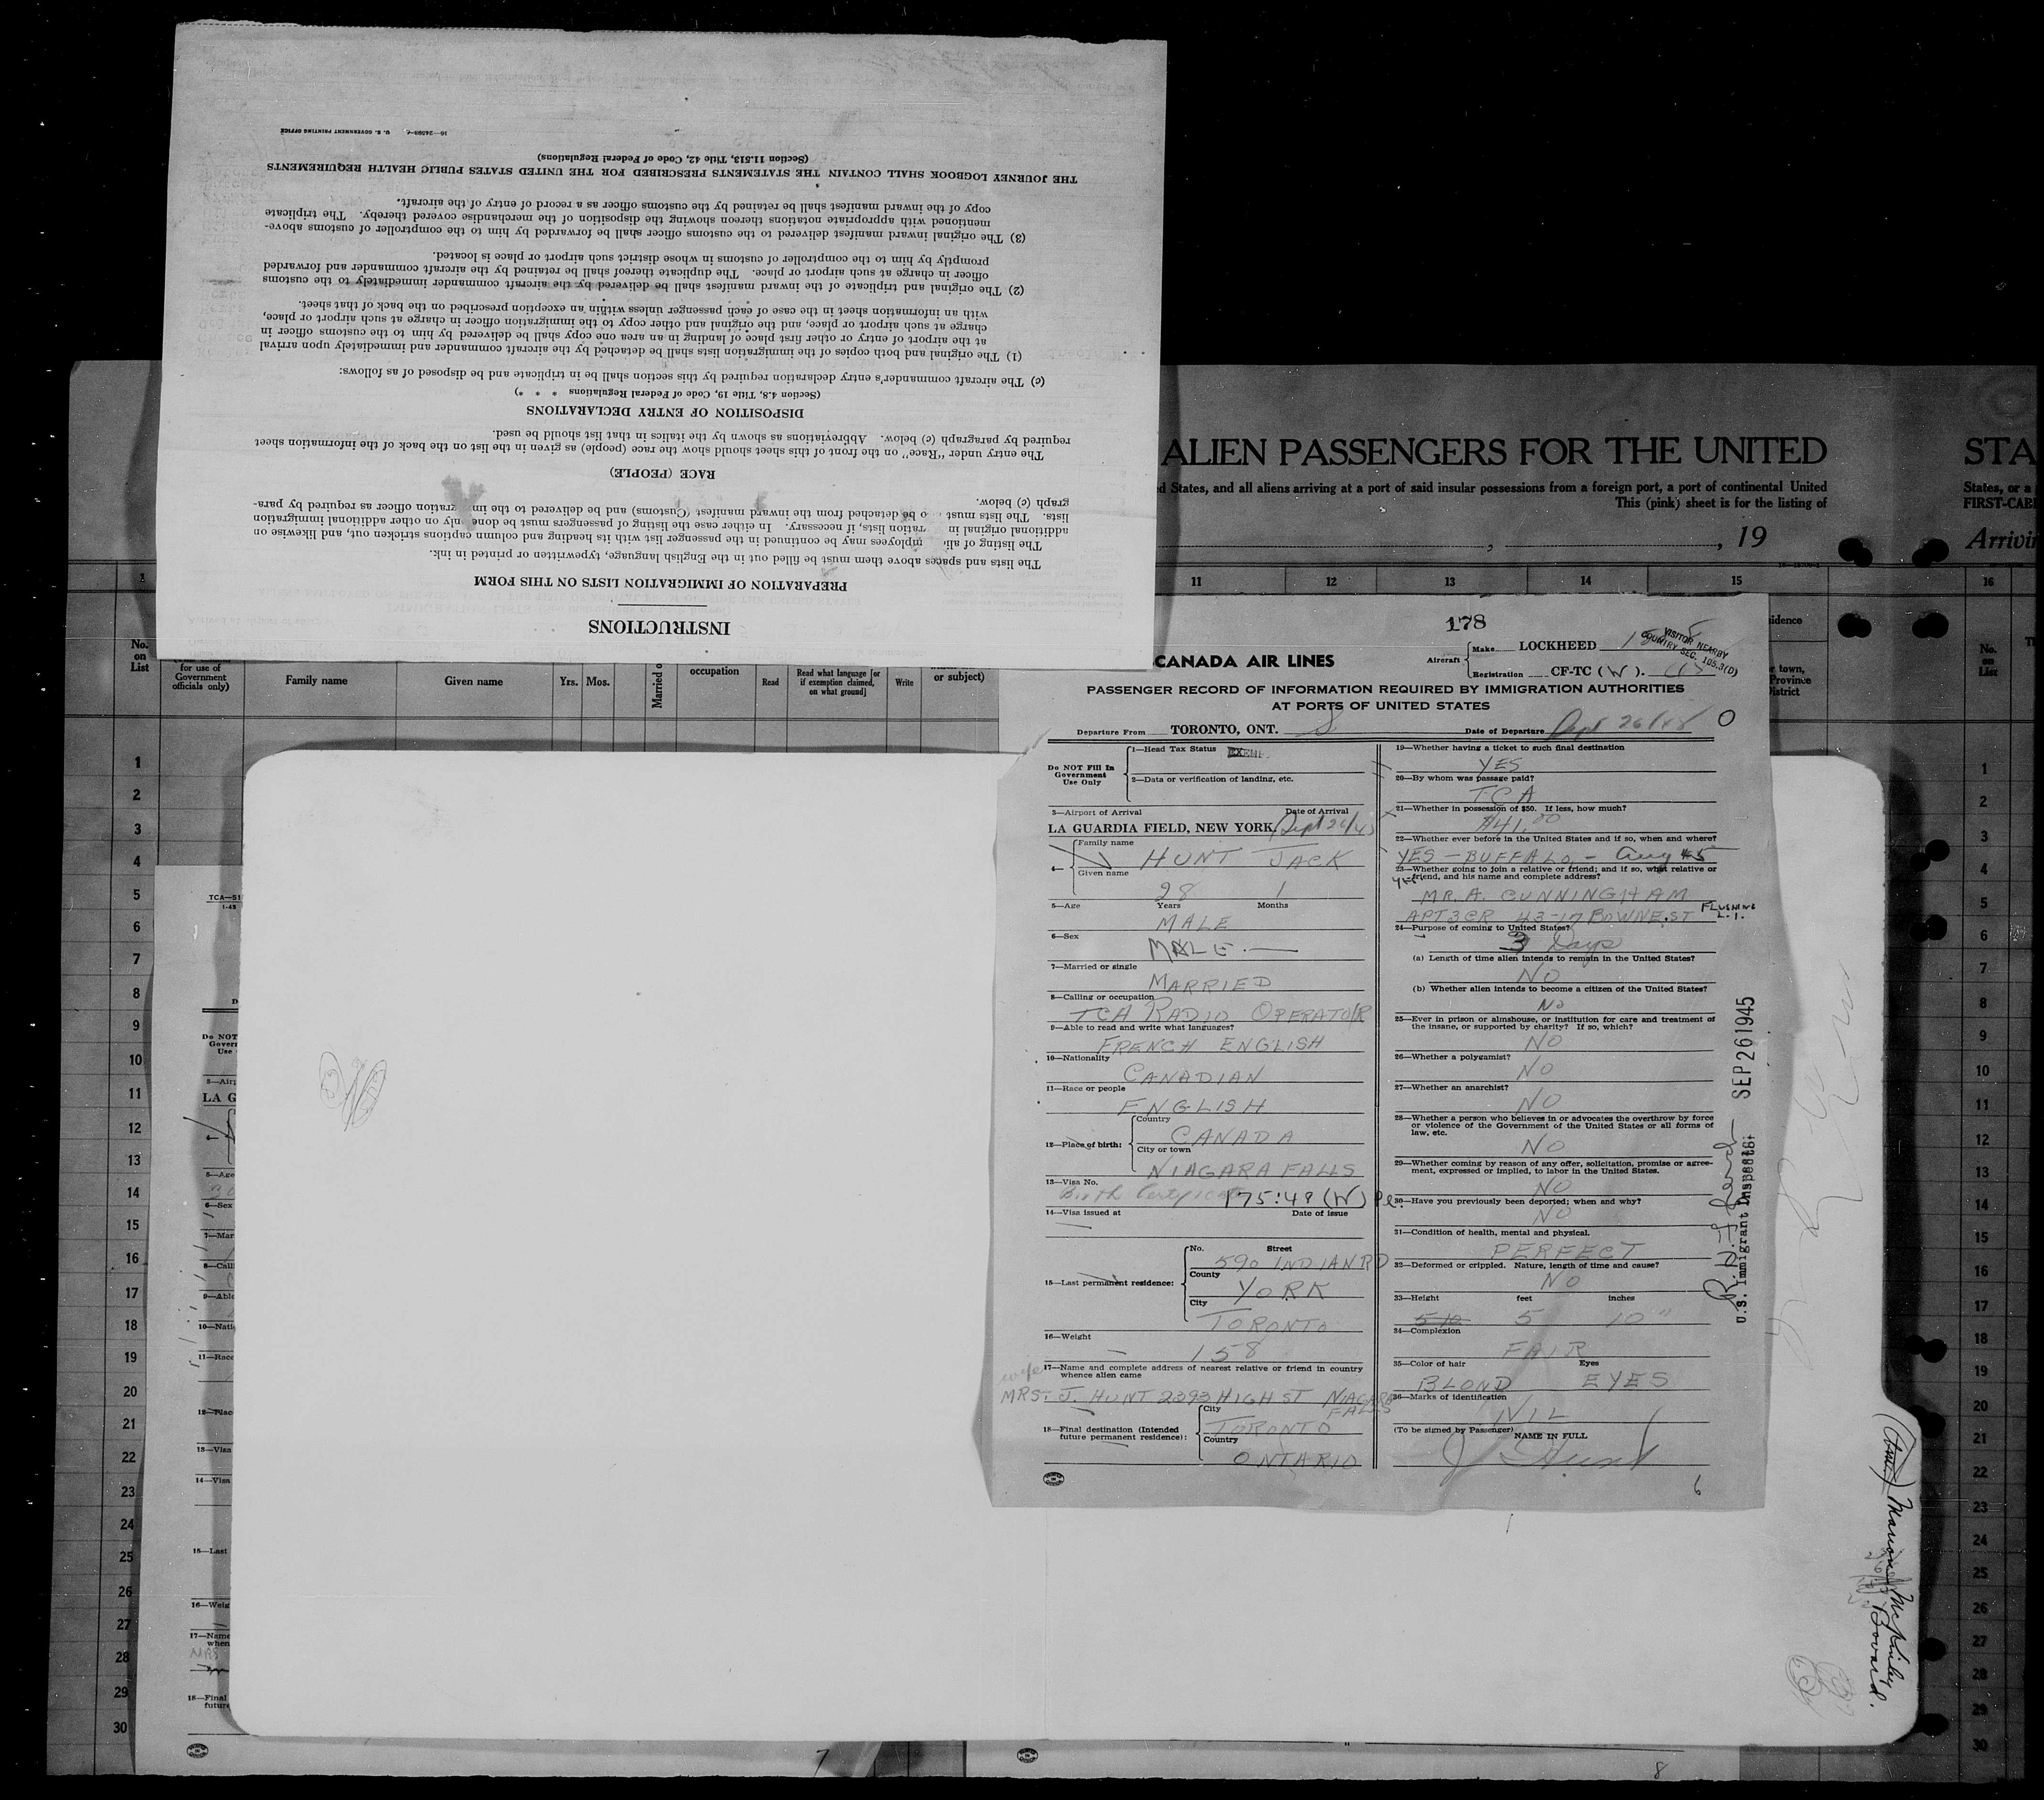 INSTRUCTIONS
PREPARATION OF IMMIGRATION LISTS ON THIS FORM
The lists and spaces above them must be filled out in the English language, typewritten or printed in ink.
The listing of employees may be continued in the passenger list with its heading and column captions stricken out, and likewise on
additional original in ration lists, if necessary. In either case the listing of passengers must be done only on other additional immigration
lists. The lists must be detached from the inward manifest (Customs) and be delivered to the immigration officer as required by para-
graph (c) below.
RACE (PEOPLE)
The entry under "Race" on the front of this sheet should show the race (people) as given in the list on the back of the information sheet
required by paragraph (c) below. Abbreviations as shown by the italics in that list should be used.
DISPOSITION OF ENTRY DECLARATIONS
(Section 4.8, Title 19, Code of Federal Regulations * * *)
(c) The aircraft commander's entry declaration required by this section shall be in triplicate and be disposed of as follows:
(1) The original and both copies of the immigration lists shall be detached by the aircraft commander and immediately upon arrival
at the airport of entry or other first place of landing in an area one copy shall be delivered by him to the customs officer in
charge at such airport or place, and the original and other copy to the immigration officer in charge at such airport or place,
with an information sheet in the case of each passenger unless within an exception prescribed on the back of that sheet.
(2) The original and triplicate of the inward manifest shall be delivered by the aircraft commander immediately to the customs
officer in charge at such airport or place. The duplicate thereof shall be retained by the aircraft commander and forwarded
promptly by him to the comptroller of customs in whose district such airport or place is located.
(3) The original inward manifest delivered to the customs officer shall be forwarded by him to the comptroller of customs above-
mentioned with appropriate notations thereon showing the disposition of the merchandise covered thereby. The triplicate
copy of the inward manifest shall be retained by the customs officer as a record of entry of the aircraft.
THE JOURNEY LOGBOOK SHALL CONTAIN THE STATEMENTS PRESCRIBED FOR THE UNITED STATES PUBLIC HEALTH REQUIREMENTS
(Section 11.513, Title 42, Code of Federal Regulations)
U. S. GOVERNMENT PRINTING OFFICE
ALIEN PASSENGERS FOR THE UNITED STA
ed States, and all aliens arriving at a port of said insular possessions from a foreign port, a port of continental United States, or a
This (pink) sheet is for the listing of FIRST-CAB
, , 19 Arrivin
1 11 12 13 14 15 16
No. on List
for use of Government officials only)
Family name
Given name
Yrs. Mos.
Married o
occupation
Read
Read what language [or if exemption claimed, on what ground]
Write
or subject)
178
CANADA AIR LINES
Aircraft Make LOCKHEED
Registration CF-TC (W).
VISITOR NEARBY
COUNTRY SEC. 105.3(D)
PASSENGER RECORD OF INFORMATION REQUIRED BY IMMIGRATION AUTHORITIES
AT PORTS OF UNITED STATES
Departure From TORONTO, ONT. Date of Departure Sept 26/45
Do NOT Fill In Government Use Only
1—Head Tax Status EXEMPT
2—Data or verification of landing, etc.
3—Airport of Arrival Date of Arrival
LA GUARDIA FIELD, NEW YORK, Sept 26/45
4— Family name
HUNT JACK
Given name
28 1
5—Age Years Months
MALE
6—Sex
MALE
7—Married or single
MARRIED
8—Calling or occupation
TCA RADIO OPERATOR
9—Able to read and write what languages?
FRENCH ENGLISH
10—Nationality
CANADIAN
11—Race or people
ENGLISH
12—Place of birth: Country
CANADA
City or town
NIAGARA FALLS
13—Visa No.
Birth Certificate 175:48 (W) P.L.
14—Visa issued at Date of issue
15—Last permanent residence: No. Street
590 INDIAN RD
County
YORK
City
TORONTO
16—Weight
158
17—Name and complete address of nearest relative or friend in country
whence alien came
wife
MRS. J. HUNT 2393 HIGH ST NIAGARA FALLS
18—Final destination (Intended future permanent residence): City
TORONTO
Country
ONTARIO
19—Whether having a ticket to such final destination
YES
20—By whom was passage paid?
TCA
21—Whether in possession of $50. If less, how much?
$41.00
22—Whether ever before in the United States and if so, when and where?
YES - BUFFALO - Aug 45
23—Whether going to join a relative or friend; and if so, what relative or
friend, and his name and complete address?
yes
MR. A. CUNNINGHAM
APT 3CR 43-17 BOWNE ST FLUSHING L.I.
24—Purpose of coming to United States?
3 Days
(a) Length of time alien intends to remain in the United States?
NO
(b) Whether alien intends to become a citizen of the United States?
NO
25—Ever in prison or almshouse, or institution for care and treatment of
the insane, or supported by charity? If so, which?
NO
26—Whether a polygamist?
NO
27—Whether an anarchist?
NO
28—Whether a person who believes in or advocates the overthrow by force
or violence of the Government of the United States or all forms of
law, etc.
NO
29—Whether coming by reason of any offer, solicitation, promise or agree-
ment, expressed or implied, to labor in the United States.
NO
30—Have you previously been deported; when and why?
NO
31—Condition of health, mental and physical.
PERFECT
32—Deformed or crippled. Nature, length of time and cause?
NO
33—Height feet inches
5 10 5 10"
34—Complexion
FAIR
35—Color of hair Eyes
BLOND EYES
36—Marks of identification
NIL
(To be signed by Passenger) NAME IN FULL
J Hunt
6
SEP 26 1945
U.S. Immigrant Inspector
TCA—51
1-43
Do NOT
Govern
Use
3—Airp
LA G
4—
5—Age
6—Sex
7—Mar
8—Calli
9—Able
10—Nati
11—Race
12—Place
13—Visa
14—Visa
15—Last
16—Weig
17—Name
when
18—Final
future
7
8
1
2
3
4
5
6
7
8
9
10
11
12
13
14
15
16
17
18
19
20
21
22
23
24
25
26
27
28
29
30
idence
r town,
Province
istrict
No. on List
1
2
3
4
5
6
7
8
9
10
11
12
13
14
15
16
17
18
19
20
21
22
23
24
25
26
27
28
29
30